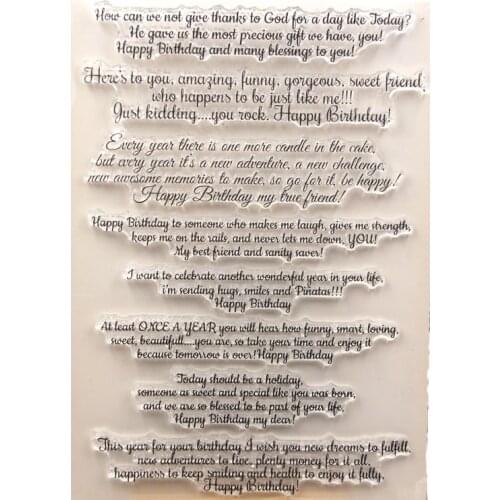 How can we not give thanks to God for a day like Today?
He gave us the most precious gift we have, you!
Happy Birthday and many blessings to you!
Here's to you, amazing, funny, gorgeous, sweet friend,
who happens to be just like me!!!
Just kidding....you rock. Happy Birthday!
Every year there is one more candle in the cake,
but every year it's a new adventure, a new challenge,
new awesome memories to make, so go for it, be happy!
Happy Birthday my true friend!
Happy Birthday to someone who makes me laugh, gives me strength,
keeps me on the rails, and never lets me down, YOU!
My best friend and sanity saver!
I want to celebrate another wonderful year in your life,
i'm sending hugs, smiles and Piñatas!!!
Happy Birthday
At least ONCE A YEAR you will hear how funny, smart, loving,
sweet, beautifull....you are, so take your time and enjoy it
because tomorrow is over!Happy Birthday
Today should be a holiday,
someone as sweet and special like you was born,
and we are so blessed to be part of your life,
Happy Birthday my dear!
This year for your birthday I wish you new dreams to fulfill,
new adventures to live, plenty money for it all,
happiness to keep smiling and health to enjoy it fully,
Happy Birthday!